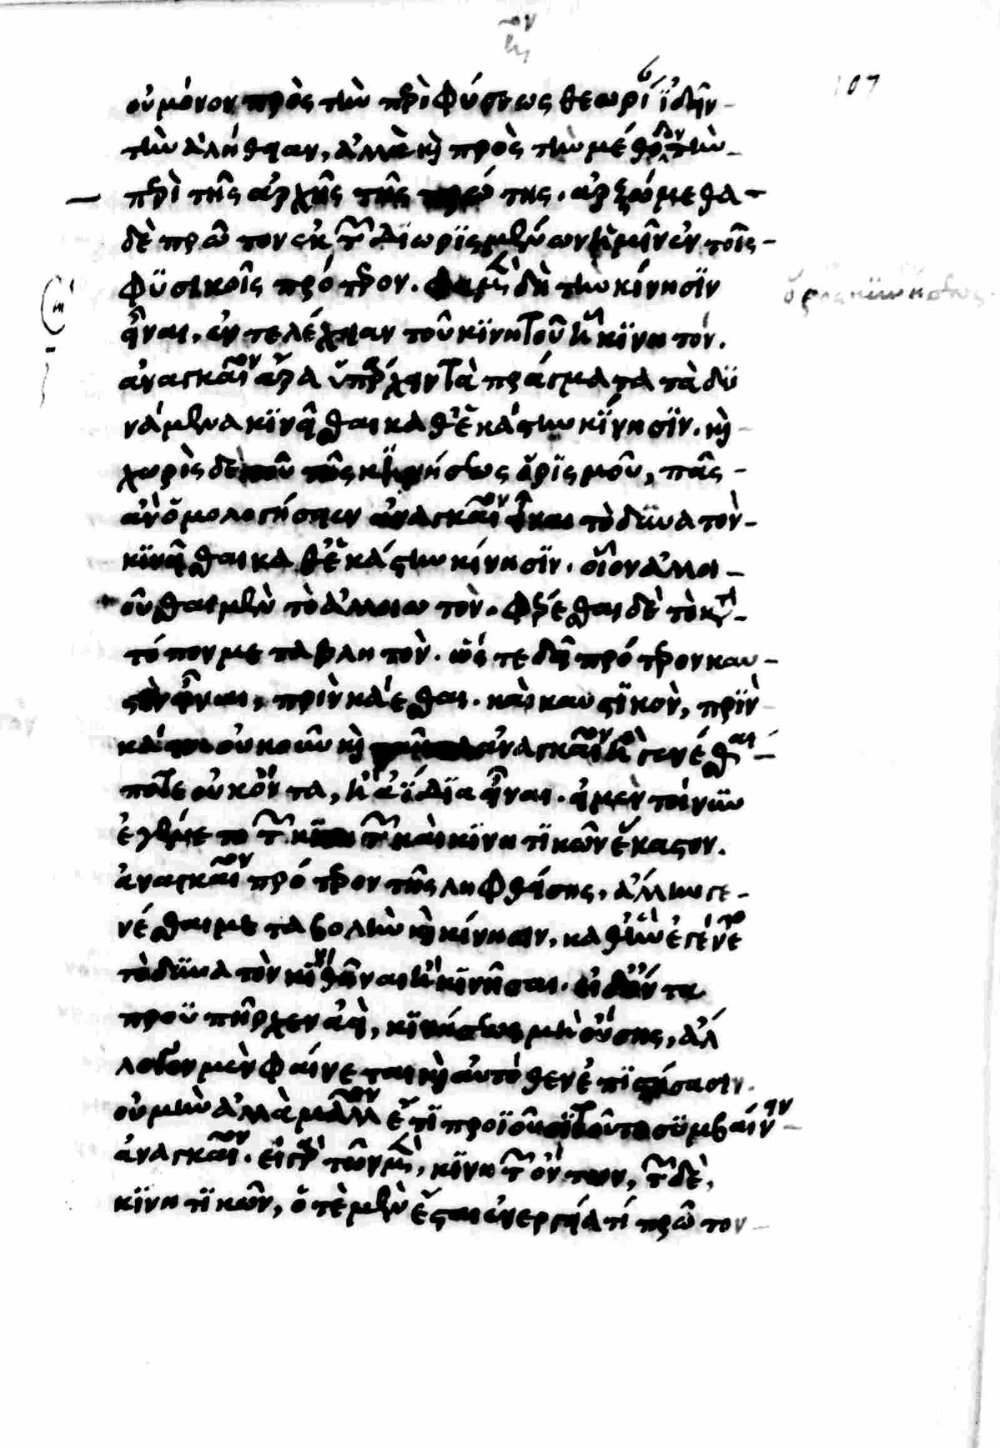 ον
107
οὐ μόνον πρὸς τὴν περὶ φύσεως θεωρί ἰδεῖν
τὴν ἀλήθειαν, ἀλλὰ καὶ πρὸς τὴν μέθοδον τὴν
περὶ τῆς ἀρχῆς τῆς πρώτης. ἀρξώμεθα
δὲ πρῶτον ἐκ τῶν διωρισμένων ἡμῖν ἐν τοῖς
φυσικοῖς πρότερον. φαμὲν δὴ τὴν κίνησιν
ὅρος κινήσεως
εἶναι, ἐντελέχειαν τοῦ κινητοῦ ᾗ κινητόν.
ἀναγκαῖον ἄρα ὑπάρχειν τὰ πράγματα τὰ δυ
νάμενα κινεῖσθαι καθ' ἑκάστην κίνησιν. καὶ
χωρὶς δὲ τοῦ τῆς κινήσεως ὁρισμοῦ, πᾶς
ἂν ὁμολογήσειεν ἀναγκαῖον εἶναι τὸ δυνατὸν
κινεῖσθαι καθ' ἑκάστην κίνησιν. οἷον ἀλλοι
οῦσθαι μὲν τὸ ἀλλοιωτόν. φέρεσθαι δὲ τὸ κατὰ
τόπον μεταβλητόν. ὥστε δεῖ πρότερον καυ
στὸν εἶναι, πρὶν κάεσθαι. καὶ καυστικὸν, πρὶν
κάειν οὐκοῦν καὶ ἀναγκαῖον ἢ γενέσθαι
ποτε οὐκ ὄντα, ἢ ἀΐδια εἶναι. εἰ μὲν τοίνυν
ἐγένετο τῶν κινητῶν καὶ κινητικῶν ἕκαστον.
ἀναγκαῖον πρότερον τῆς ληφθείσης, ἄλλην γε
νέσθαι μεταβολὴν καὶ κίνησιν, καθ' ἣν ἐγένετο
τὸ δυνατὸν κινηθῆναι ἢ κινῆσαι. εἰ δ' ὄντα
προϋπῆρχεν ἀεὶ, κινήσεως μὴ οὔσης, ἄλ
λογον μὲν φαίνεται καὶ αὐτόθεν ἐπιστήσασιν.
οὐ μὴν ἀλλὰ μᾶλλον ἔτι προϊοῦσι τοῦτο συμβαίνειν
ἀναγκαῖον. εἰ γὰρ τῶν μὲν, κινητῶν ὄντων, τῶν δὲ,
κινητικῶν, ὁτὲ μὲν ἔσται ἐνεργείᾳ τί πρῶτον